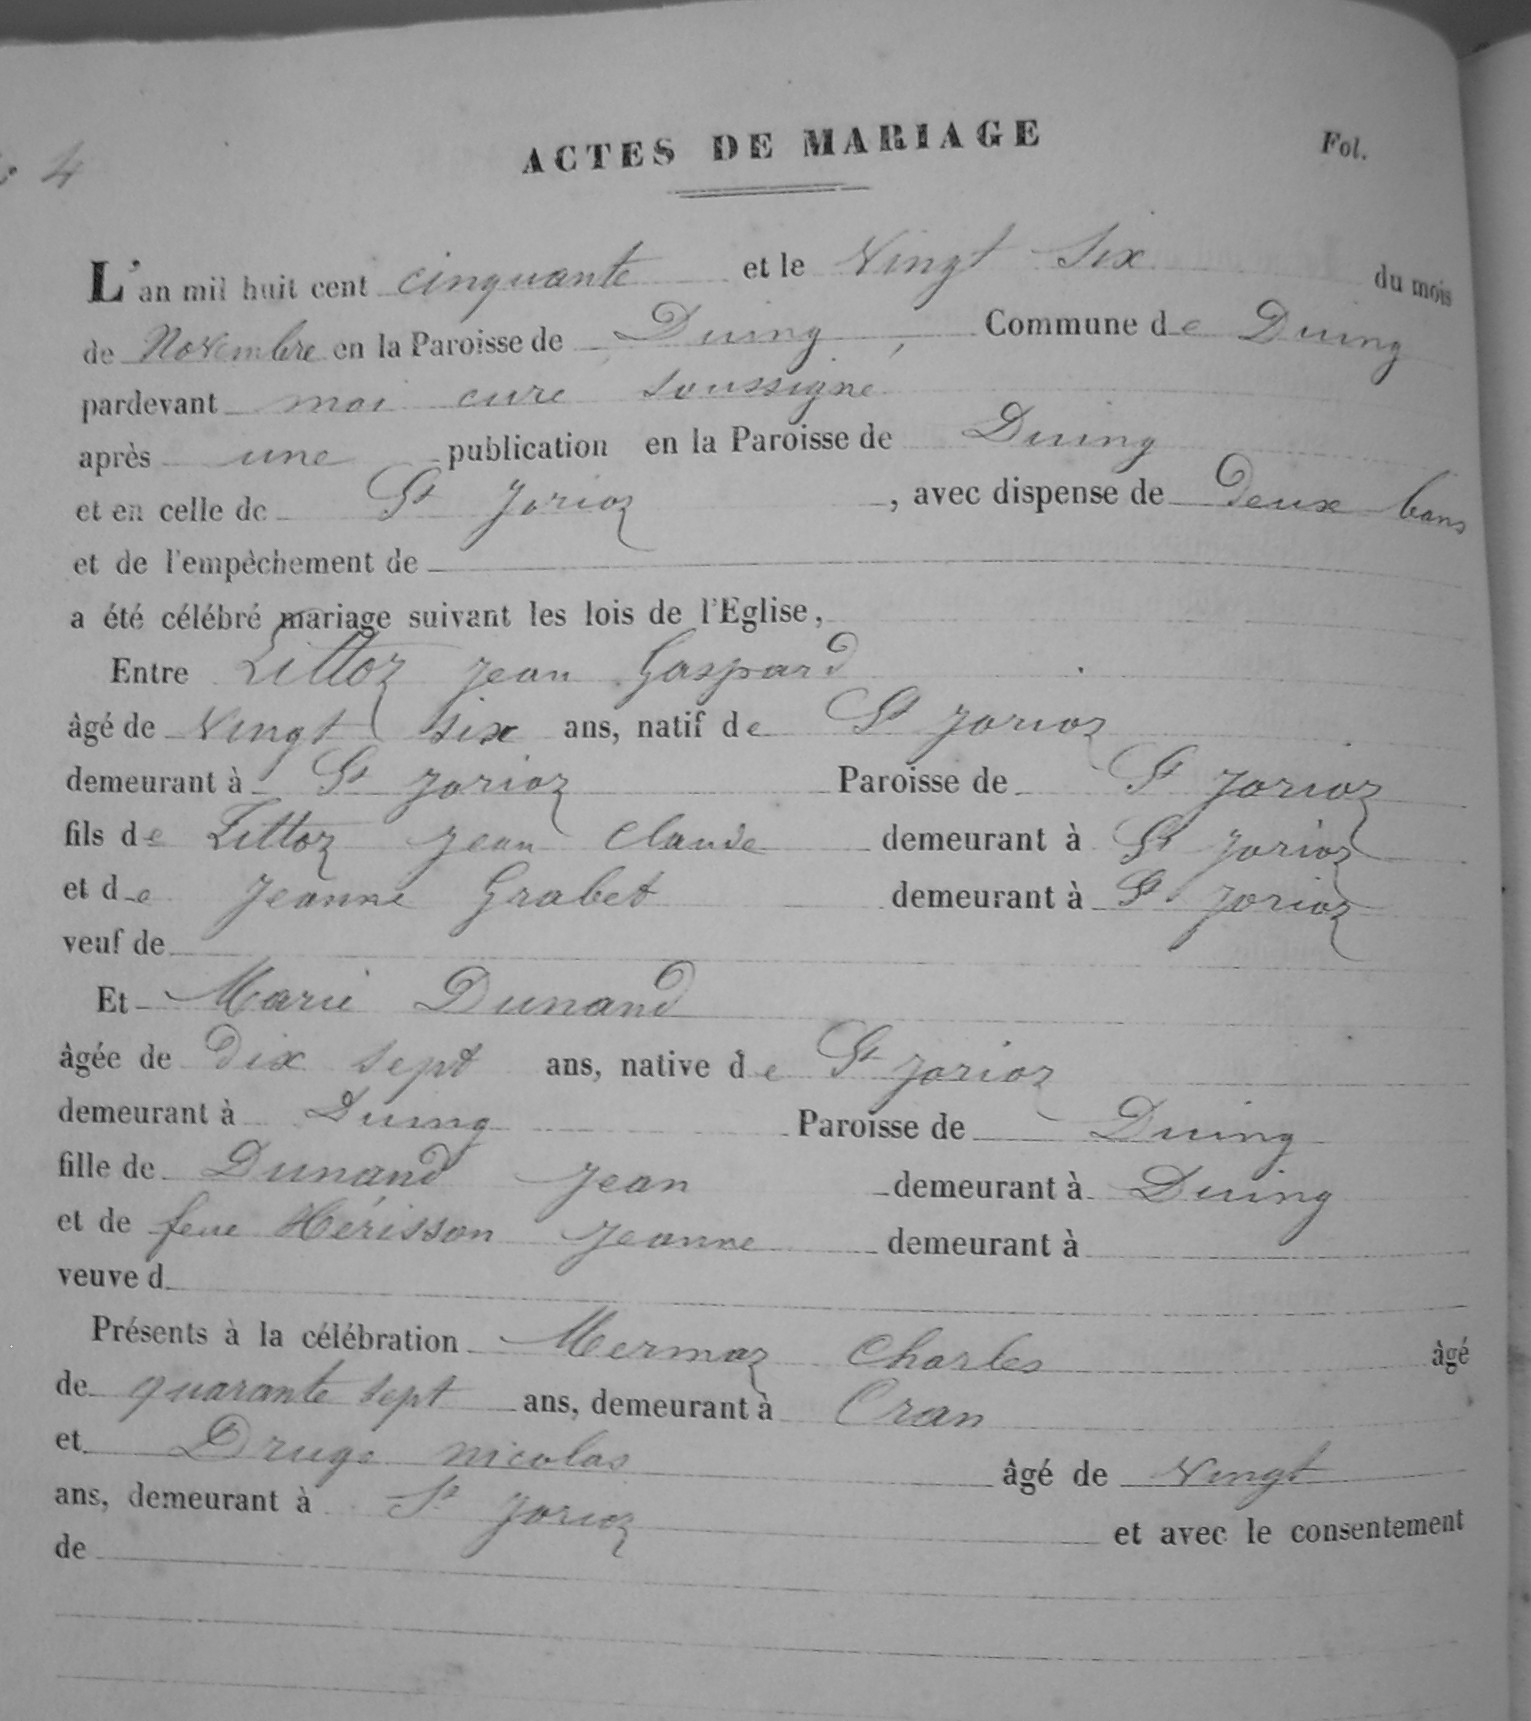 : 4
ACTES DE MARIAGE
Fol.
L'an mil huit cent cinquante et le Vingt Six du mois
de Novembre en la Paroisse de Duing, Commune de Duing
pardevant moi curé soussigné
après une publication en la Paroisse de Duing
et en celle de St Jorioz, avec dispense de Deux bans
et de l'empêchement de
a été célébré mariage suivant les lois de l'Eglise,
Entre Littoz Jean Gaspard
âgé de Vingt six ans, natif de St Jorioz
demeurant à St Jorioz Paroisse de St Jorioz
fils de Littoz Jean Claude demeurant à St Jorioz
et de Jeanne Grabet demeurant à St Jorioz
veuf de
Et Marie Dunand
âgée de Dix sept ans, native de St Jorioz
demeurant à Duing Paroisse de Duing
fille de Dunand Jean demeurant à Duing
et de feue Hérisson Jeanne demeurant à
veuve d
Présents à la célébration Mermaz Charles âgé
de quarante sept ans, demeurant à Cran
et Druge nicolas âgé de Vingt
ans, demeurant à St Jorioz et avec le consentement
de